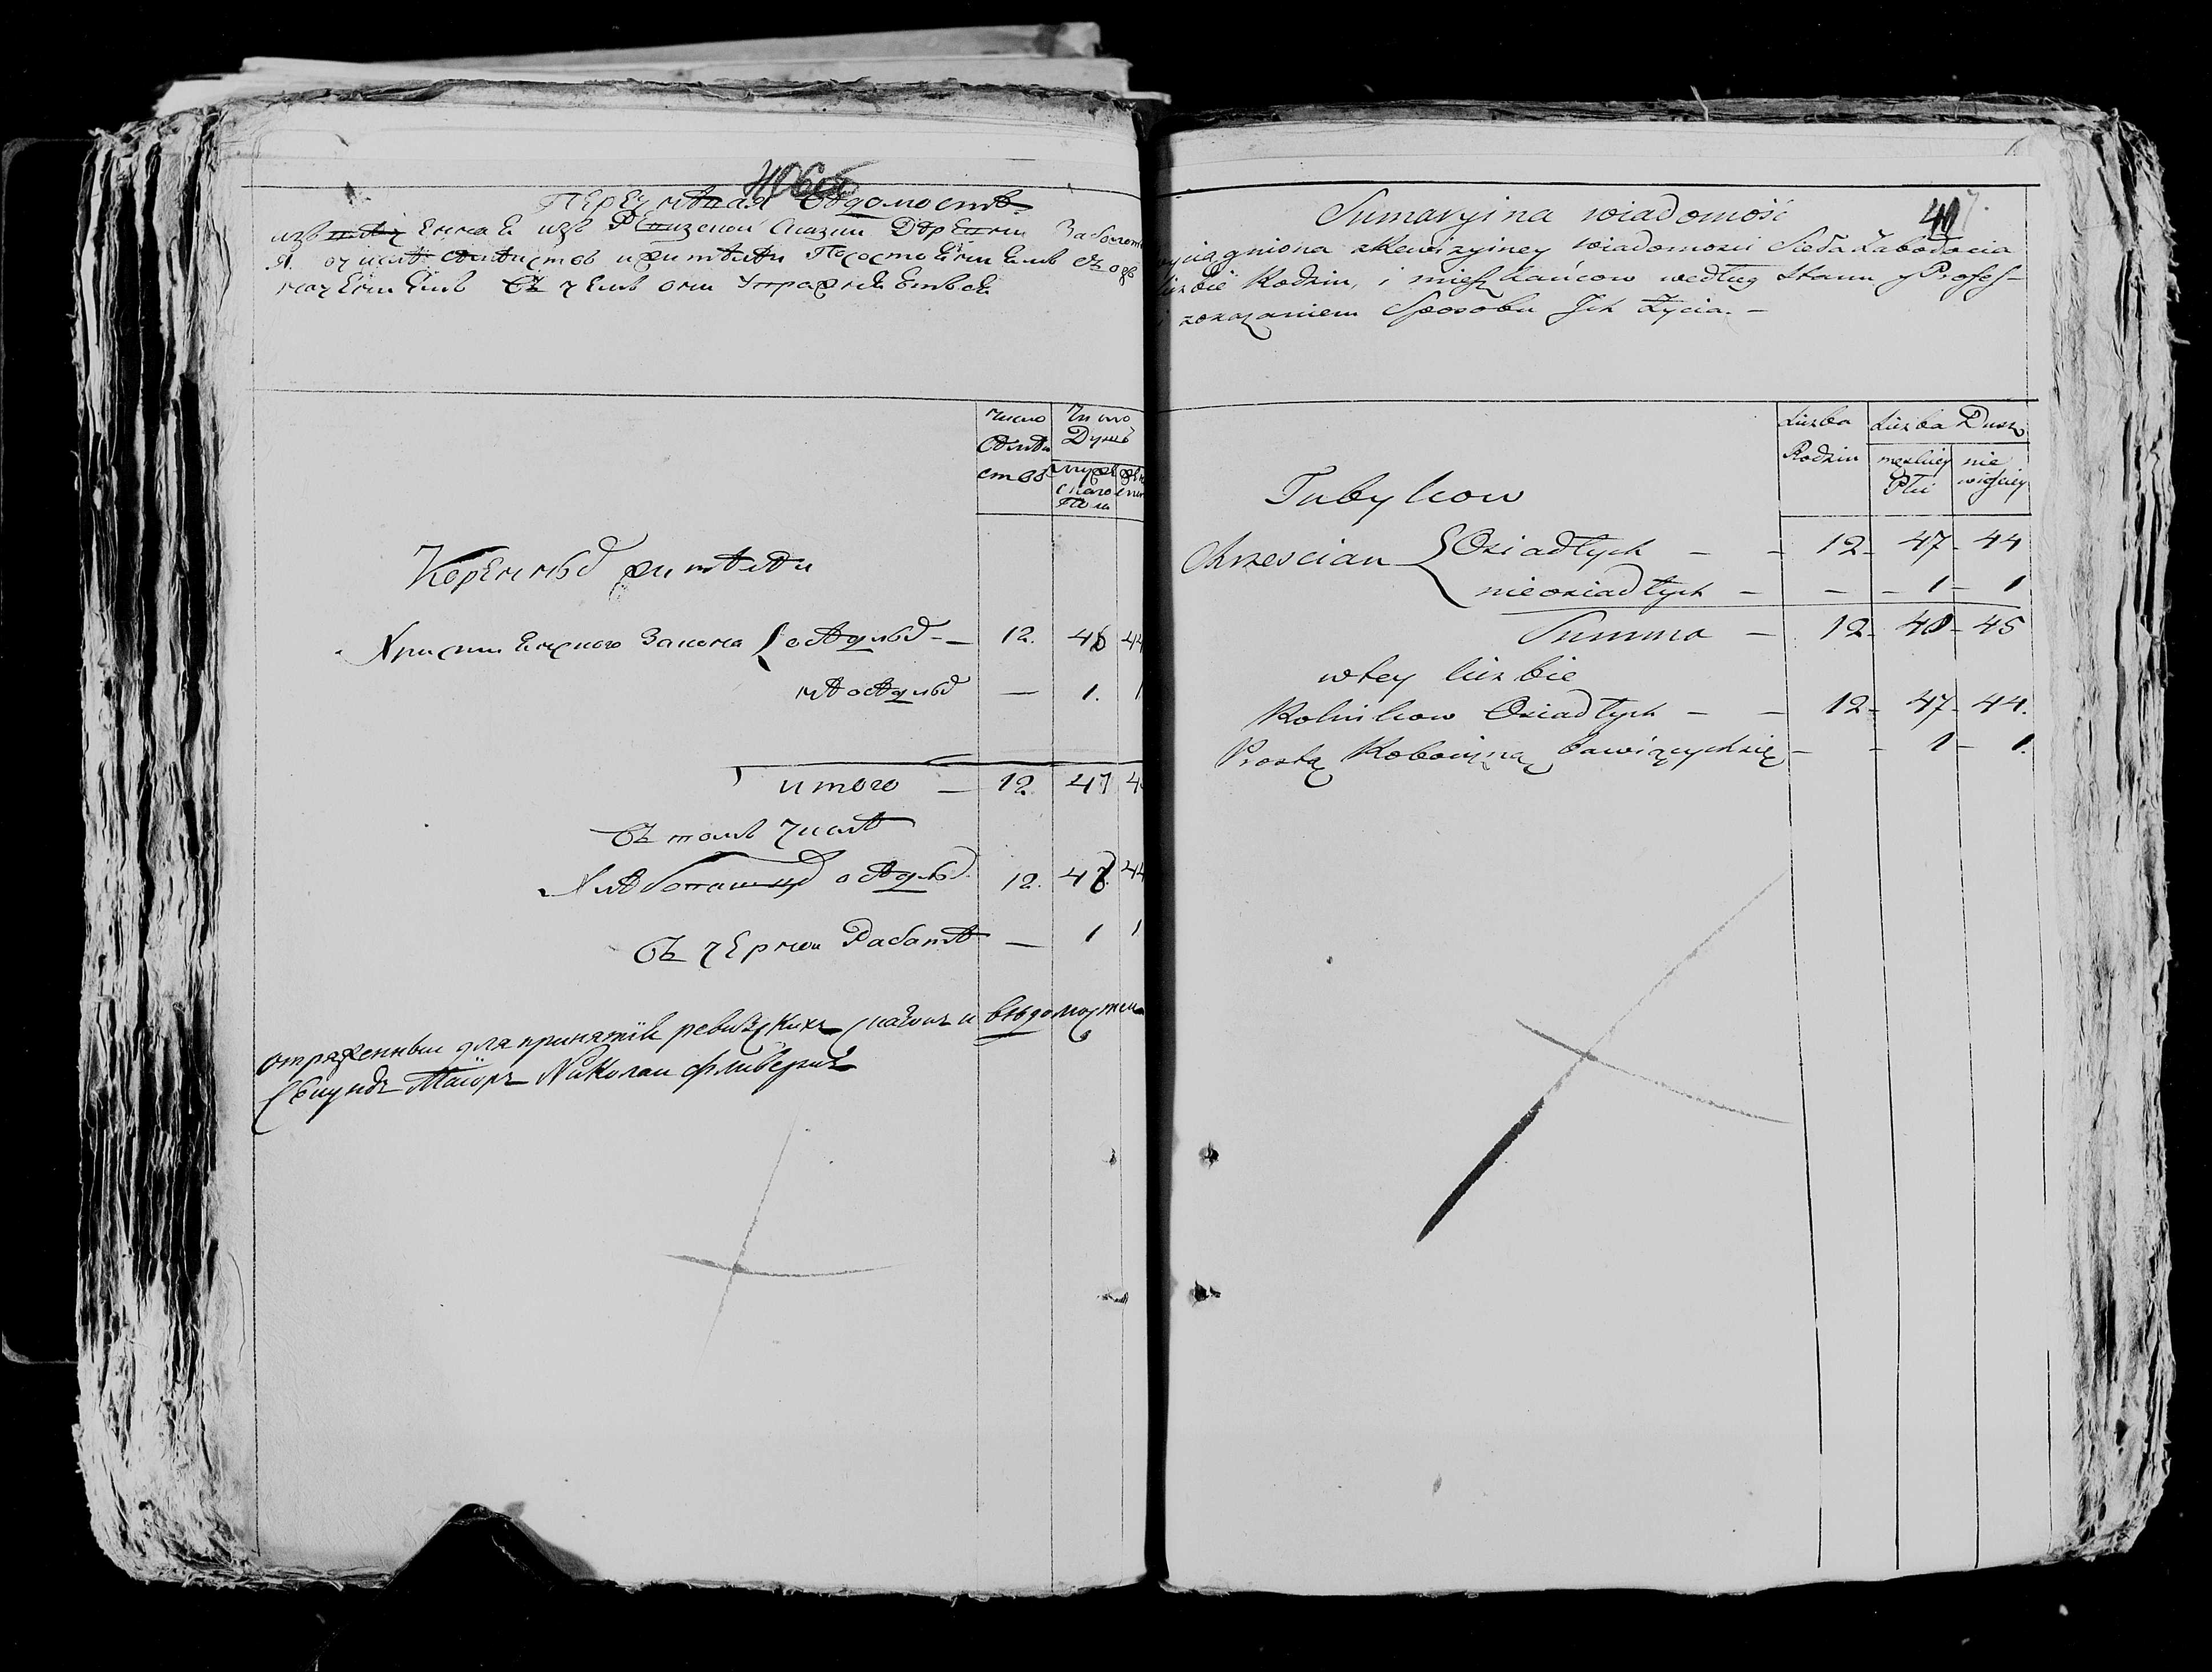 406об
Перечневая Ведомость
извлеченная изъ Ревизской Сказки Деревни Заболот
я. о числе семействъ и жителей По состоянiямъ съ озв
наченiемъ въ чемъ они Упражняются
число Семействъ
Число Душъ
мужскаго Пола
женс
Коренныхъ жителей
Христианскаго Закона { оседлыхъ — 12. 46 44
неоседлыхъ — 1. 1
итого — 12 47 4
въ томъ числе
Хлебопашцовъ оседлыхъ 12. 47 44
въ черной Работе — 1 1
отряженный для принятiя ревизскихъ сказокъ и ведомостей
Секундъ Маiоръ Николай
407
Sumaryina wiadomość
wyciągniona z Rewizyiney wiadomosci Sioła Zabołocia
liczbie Rodzin, i mięszkańcow według Stanu y Profes-
i z okazaniem Sposobu Ich Życia. —
Liczba Rodzin
Liczba Dusz
męskiey Płci
niewieściey
Tubylcow
Chrzescian { Osiadłych — — 12 - 47 - 44
nieosiadłych — — - 1 - 1
Summa — 12 - 48 - 45
w tey liczbie
Rolnikow Osiadłych — — 12 - 47 - 44.
Prostą Robocizną bawiących się — - 1 - 1.